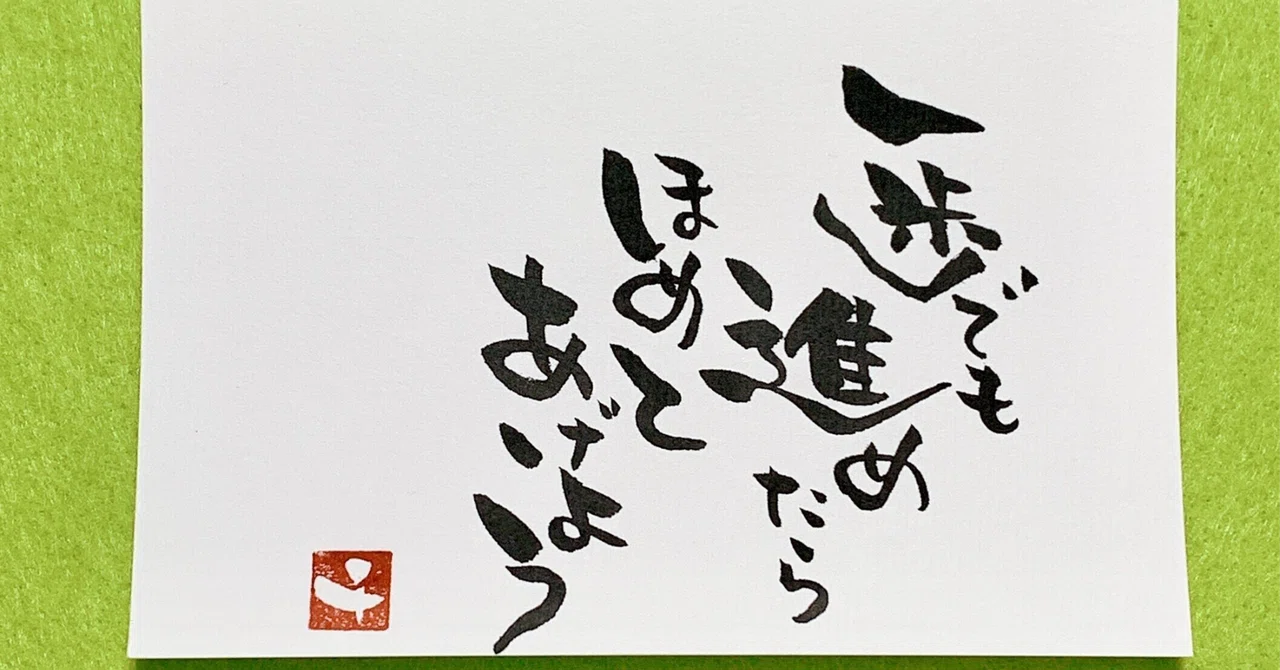 一歩でも
進めたら
ほめて
あげよう